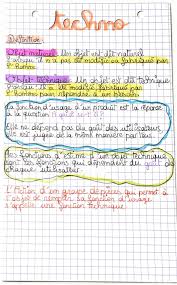 techno
Définition :
Objet naturel : Un objet est dit naturel
lorsque il n'a pas été modifié, fabriqué par
l'homme
Objet technique : Un objet est dit technique
lorsque il a été modifié, fabriqué par
l'homme pour répondre à un besoin
La fonction d'usage d'un produit est la réponse
à la question " À quoi sert-il ?"
Elle ne dépend pas du goût des utilisateurs
elle est jugée de la même manière par tous.
Les fonctions d'estime d'un objet technique
sont les fonctions qui dépendent du goût de
chaque utilisateur
L'Action d'un groupe de pièces qui permet à
l'objet de remplir sa fonction d'usage
s'appelle une fonction technique